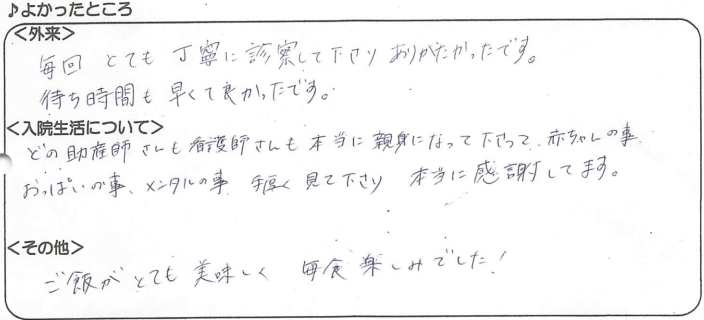 ♪よかったところ
<外来>
毎回 とても 丁寧に診察して下さり ありがたかったです。
待ち時間も 早くて良かったです。
<入院生活について>
どの助産師さんも看護師さんも 本当に 親身になって下さって、赤ちゃんの事
おっぱいの事、メンタルの事 手厚く 見て下さり 本当に感謝してます。
<その他>
ご飯がとても 美味しく 毎食 楽しみでした!